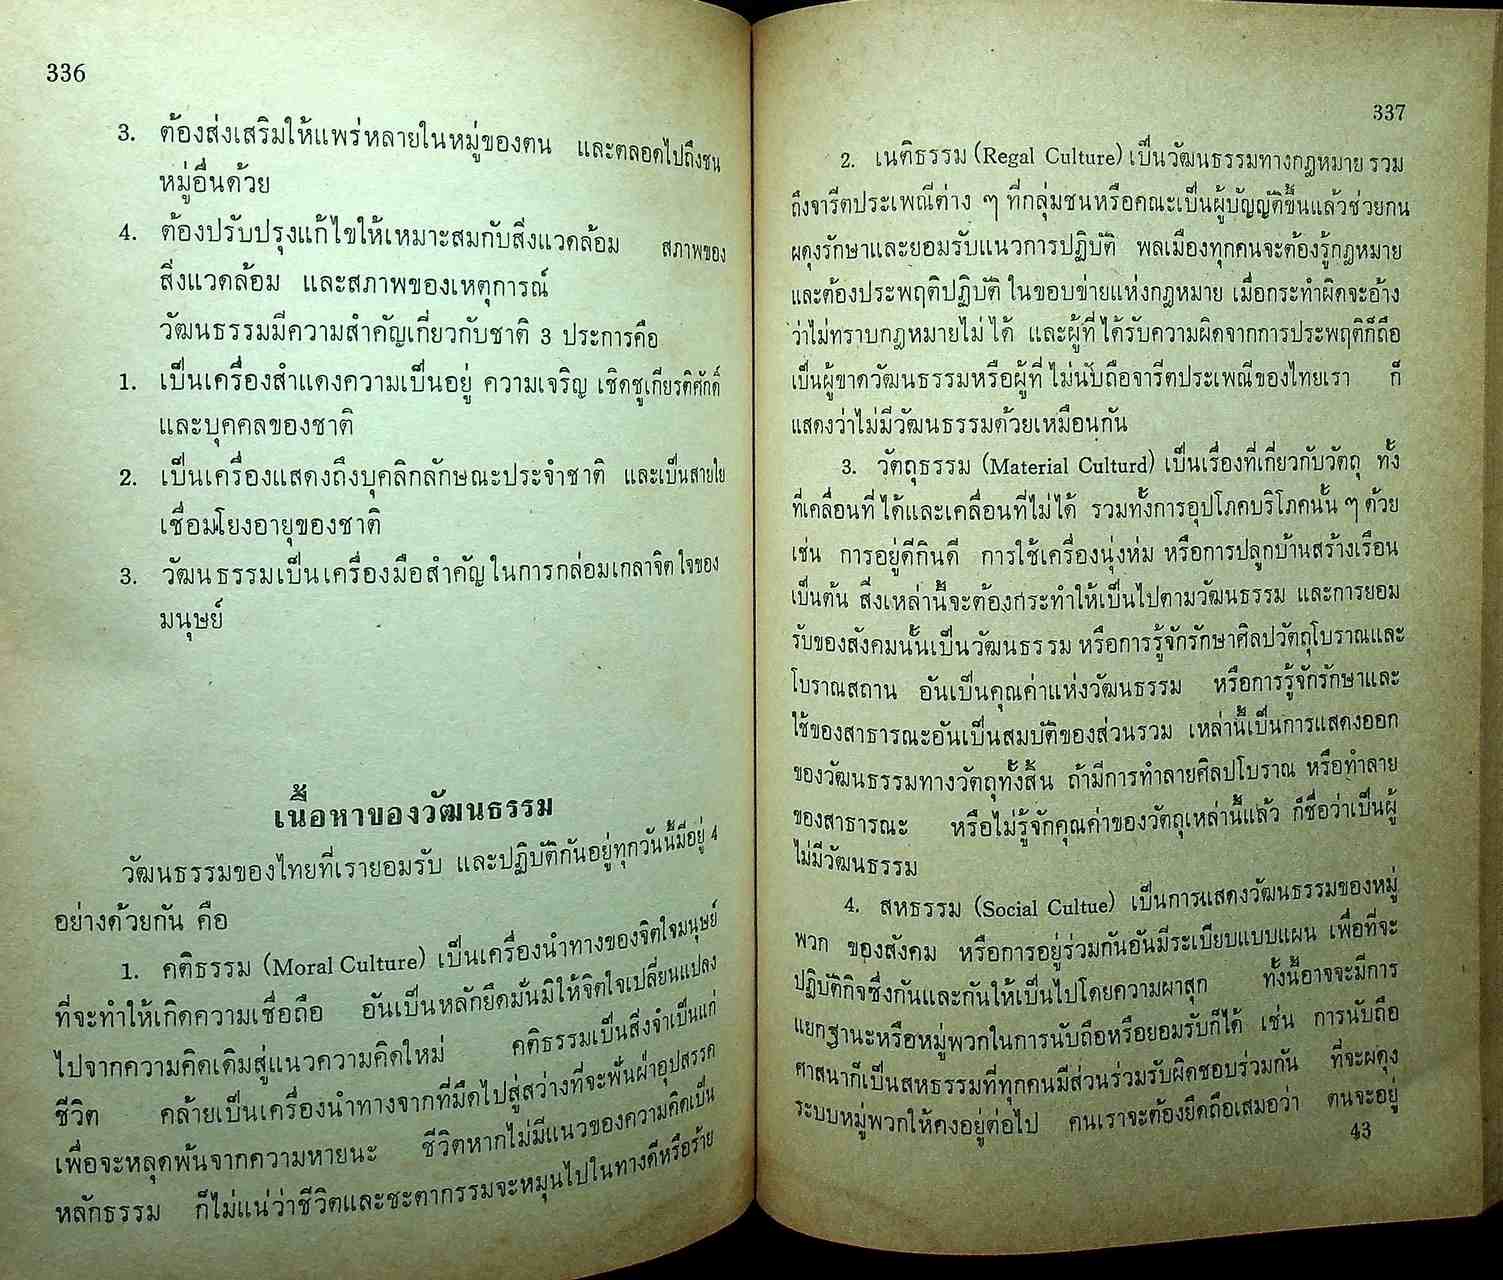 336
3. ต้องส่งเสริมให้แพร่หลายในหมู่ของตน และตลอดไปถึงชน
หมู่อื่นด้วย
4. ต้องปรับปรุงแก้ไขให้เหมาะสมกับสิ่งแวดล้อม สภาพของ
สิ่งแวดล้อม และสภาพของเหตุการณ์
วัฒนธรรมมีความสำคัญเกี่ยวกับชาติ 3 ประการคือ
1. เป็นเครื่องสำแดงความเป็นอยู่ ความเจริญ เชิดชูเกียรติศักดิ์
และบุคคลของชาติ
2. เป็นเครื่องแสดงถึงบุคลิกลักษณะประจำชาติ และเป็นสายใย
เชื่อมโยงอายุของชาติ
3. วัฒนธรรมเป็นเครื่องมือสำคัญในการกล่อมเกลาจิตใจของ
มนุษย์
เนื้อหาของวัฒนธรรม
วัฒนธรรมของไทยที่เรายอมรับ และปฏิบัติกันอยู่ทุกวันนี้มีอยู่ 4
อย่างด้วยกัน คือ
1. คติธรรม (Moral Culture) เป็นเครื่องนำทางของจิตใจมนุษย์
ที่จะทำให้เกิดความเชื่อถือ อันเป็นหลักยึดมั่นมิให้จิตใจเปลี่ยนแปลง
ไปจากความคิดเดิมสู่แนวความคิดใหม่ คติธรรมเป็นสิ่งจำเป็นแก่
ชีวิต คล้ายเป็นเครื่องนำทางจากที่มืดไปสู่สว่างที่จะพ้นฝ่าอุปสรรค
เพื่อจะหลุดพ้นจากความหายนะ ชีวิตหากไม่มีแนวของความคิดเป็น
หลักธรรม ก็ไม่แน่ว่าชีวิตและชะตากรรมจะหมุนไปในทางดีหรือร้าย
337
2. เนติธรรม (Regal Culture) เป็นวัฒนธรรมทางกฎหมาย รวม
ถึงจารีตประเพณีต่าง ๆ ที่กลุ่มชนหรือคณะเป็นผู้บัญญัติขึ้นแล้วช่วยกัน
ผดุงรักษาและยอมรับแนวการปฏิบัติ พลเมืองทุกคนจะต้องรู้กฎหมาย
และต้องประพฤติปฏิบัติ ในขอบข่ายแห่งกฎหมาย เมื่อกระทำผิดจะอ้าง
ว่าไม่ทราบกฎหมายไม่ได้ และผู้ที่ได้รับความผิดจากการประพฤติก็ถือ
เป็นผู้ขาดวัฒนธรรมหรือผู้ที่ไม่นับถือจารีตประเพณีของไทยเรา ก็
แสดงว่าไม่มีวัฒนธรรมด้วยเหมือนกัน
3. วัตถุธรรม (Material Culturd) เป็นเรื่องที่เกี่ยวกับวัตถุ ทั้ง
ที่เคลื่อนที่ได้และเคลื่อนที่ไม่ได้ รวมทั้งการอุปโภคบริโภคนั้น ๆ ด้วย
เช่น การอยู่ดีกินดี การใช้เครื่องนุ่งห่ม หรือการปลูกบ้านสร้างเรือน
เป็นต้น สิ่งเหล่านี้จะต้องกระทำให้เป็นไปตามวัฒนธรรม และการยอม
รับของสังคมนั้นเป็นวัฒนธรรม หรือการรู้จักรักษาศิลปวัตถุโบราณและ
โบราณสถาน อันเป็นคุณค่าแห่งวัฒนธรรม หรือการรู้จักรักษาและ
ใช้ของสาธารณะอันเป็นสมบัติของส่วนรวม เหล่านี้เป็นการแสดงออก
ของวัฒนธรรมทางวัตถุทั้งสิ้น ถ้ามีการทำลายศิลปโบราณ หรือทำลาย
ของสาธารณะ หรือไม่รู้จักคุณค่าของวัตถุเหล่านี้แล้ว ก็ชื่อว่าเป็นผู้
ไม่มีวัฒนธรรม
4. สหธรรม (Social Cultue) เป็นการแสดงวัฒนธรรมของหมู่
พวก ของสังคม หรือการอยู่ร่วมกันอันมีระเบียบแบบแผน เพื่อที่จะ
ปฏิบัติกิจซึ่งกันและกันให้เป็นไปโดยความผาสุก ทั้งนี้อาจจะมีการ
แยกฐานะหรือหมู่พวกในการนับถือหรือยอมรับก็ได้ เช่น การนับถือ
ศาสนาก็เป็นสหธรรมที่ทุกคนมีส่วนร่วมรับผิดชอบร่วมกัน ที่จะผดุง
ระบบหมู่พวกให้คงอยู่ต่อไป คนเราจะต้องยึดถือเสมอว่า ตนจะอยู่
43